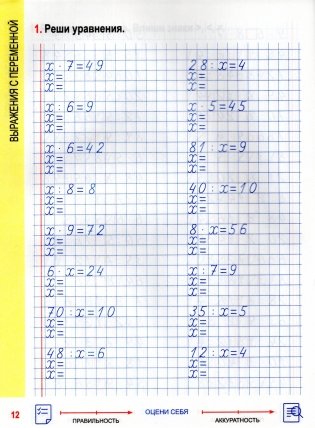 ВЫРАЖЕНИЯ С ПЕРЕМЕННОЙ
1. Реши уравнения.
x · 7 = 49
x =
x =
28 : x = 4
x =
x =
x : 6 = 9
x =
x =
x · 5 = 45
x =
x =
x · 6 = 42
x =
x =
81 : x = 9
x =
x =
x : 8 = 8
x =
x =
40 : x = 10
x =
x =
x · 9 = 72
x =
x =
8 · x = 56
x =
x =
6 · x = 24
x =
x =
x : 7 = 9
x =
x =
70 : x = 10
x =
x =
35 : x = 5
x =
x =
48 : x = 6
x =
x =
12 : x = 4
x =
x =
12
ПРАВИЛЬНОСТЬ
ОЦЕНИ СЕБЯ
АККУРАТНОСТЬ